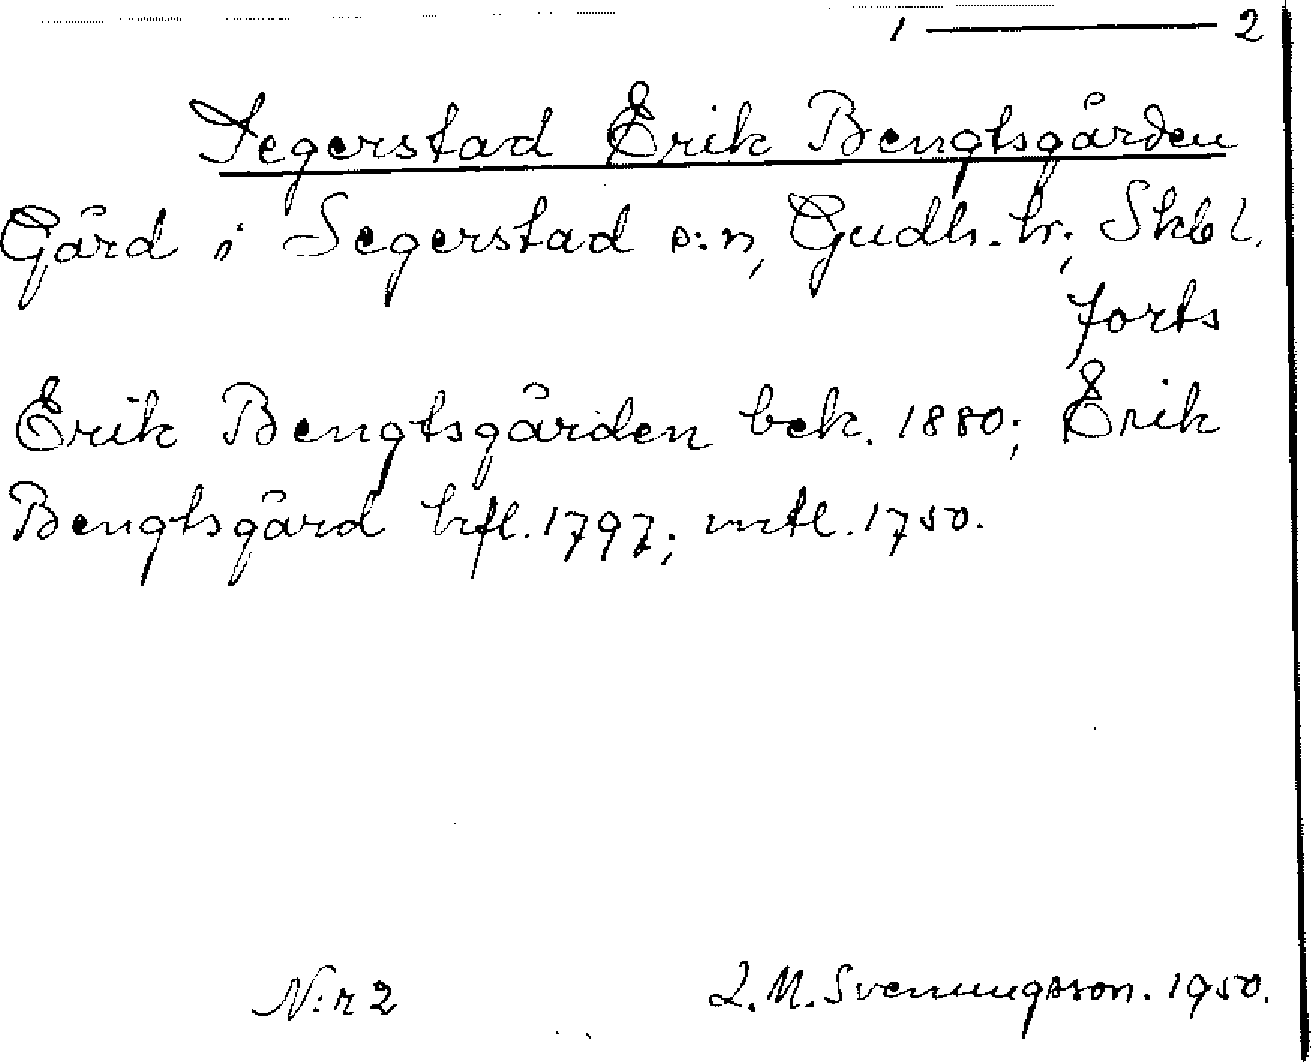 1 — 2
Segerstad Erik Bengtsgården
Gård i Segerstad s:n, Gudh. hr., Skbl.
forts
Erik Bengtsgården bek. 1880; Erik
Bengtsgård hfl. 1797; mtl. 1750.
N:r 2 L. M. Svenungsson. 1950.